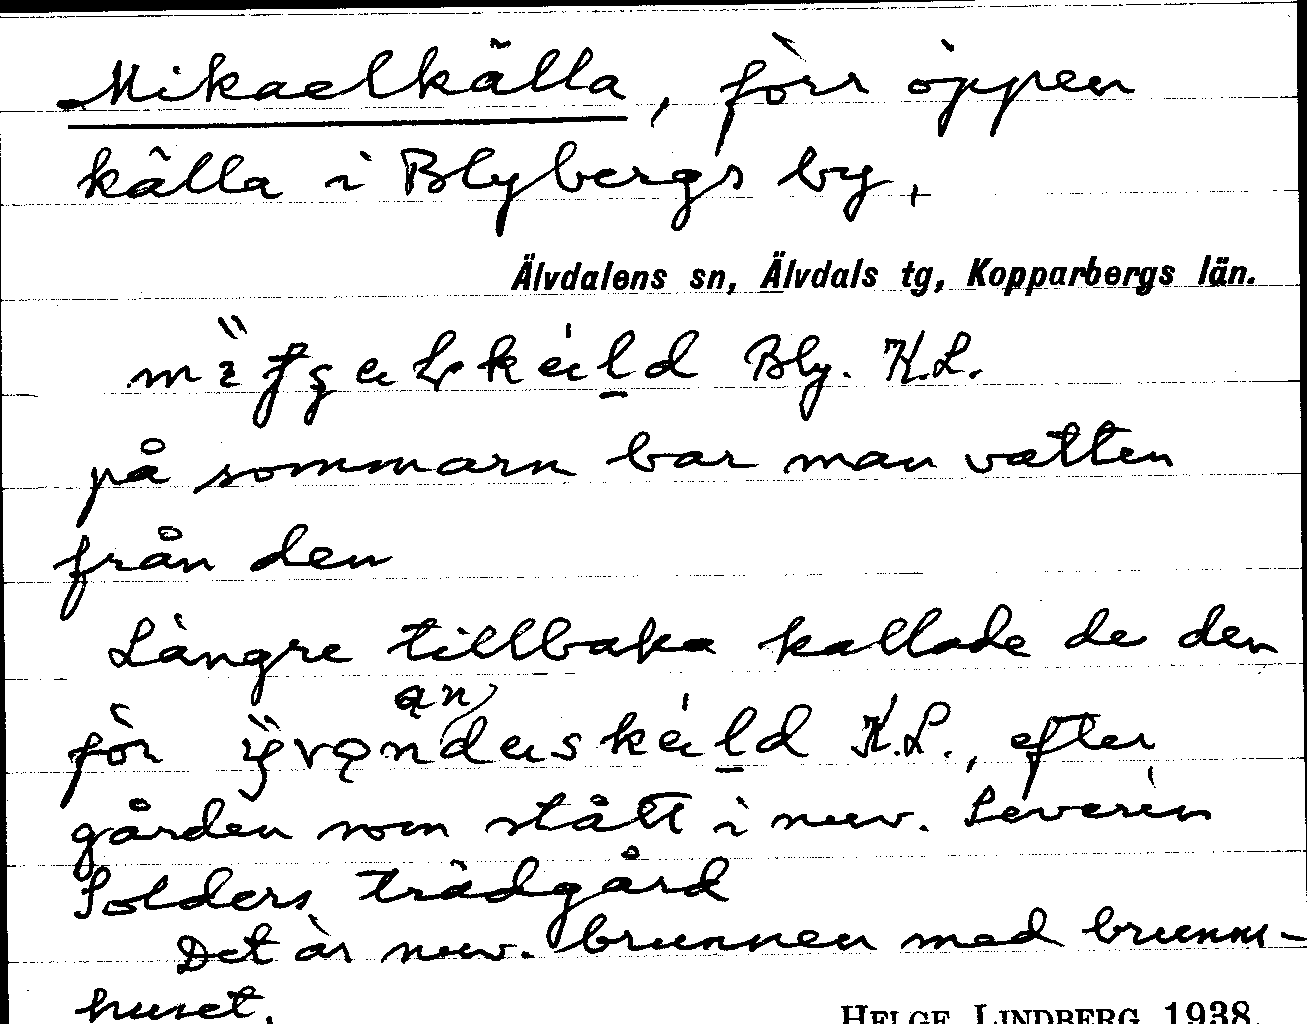 Mikaelkälla, förr öppen
källa i Blybergs by,
Älvdalens sn, Älvdals tg, Kopparbergs län.
Bly. K.L.
på sommarn bar man vatten
från den
Längre tillbaka kallade de den
för K.L., efter
gården som stått i nuv. Severin
Solders trädgård
Det är nuv. brunnen med brunns-
huset.
HELGE LINDBERG 1938.